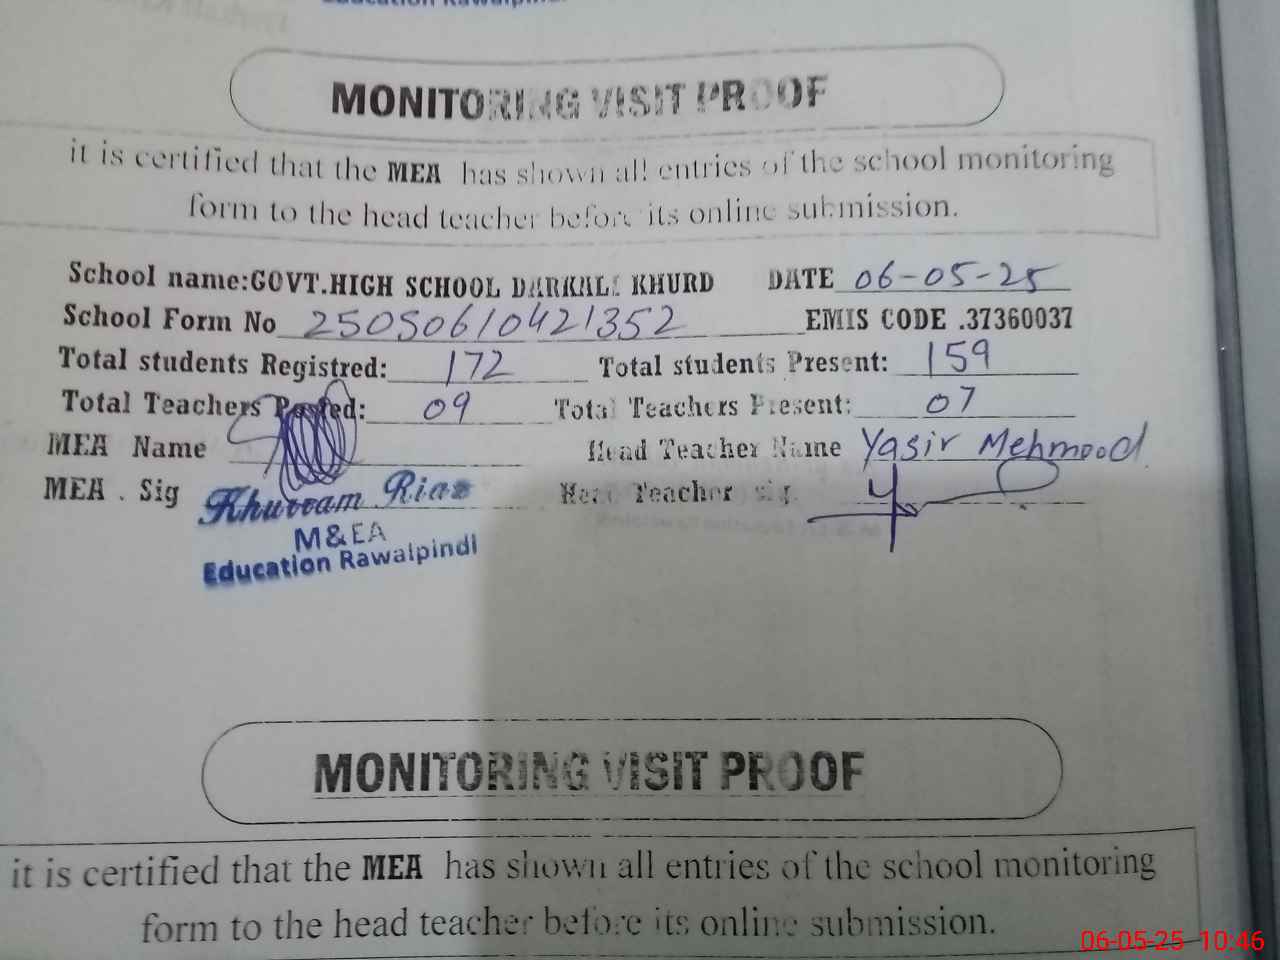 Education Rawalpindi
MONITORING VISIT PROOF
it is certified that the MEA has shown all entries of the school monitoring
form to the head teacher before its online submission.
School name:GOVT.HIGH SCHOOL DARKALI KHURD DATE 06-05-25
School Form No 25050610421352 EMIS CODE .37360037
Total students Registred: 172 Total students Present: 159
Total Teachers Posted: 09 Total Teachers Present: 07
MEA Name Head Teacher Name Yasir Mehmood
MEA . Sig Khurram Riaz Head Teacher sig.
M&EA
Education Rawalpindi
MONITORING VISIT PROOF
it is certified that the MEA has shown all entries of the school monitoring
form to the head teacher before its online submission.
06-05-25 10:46